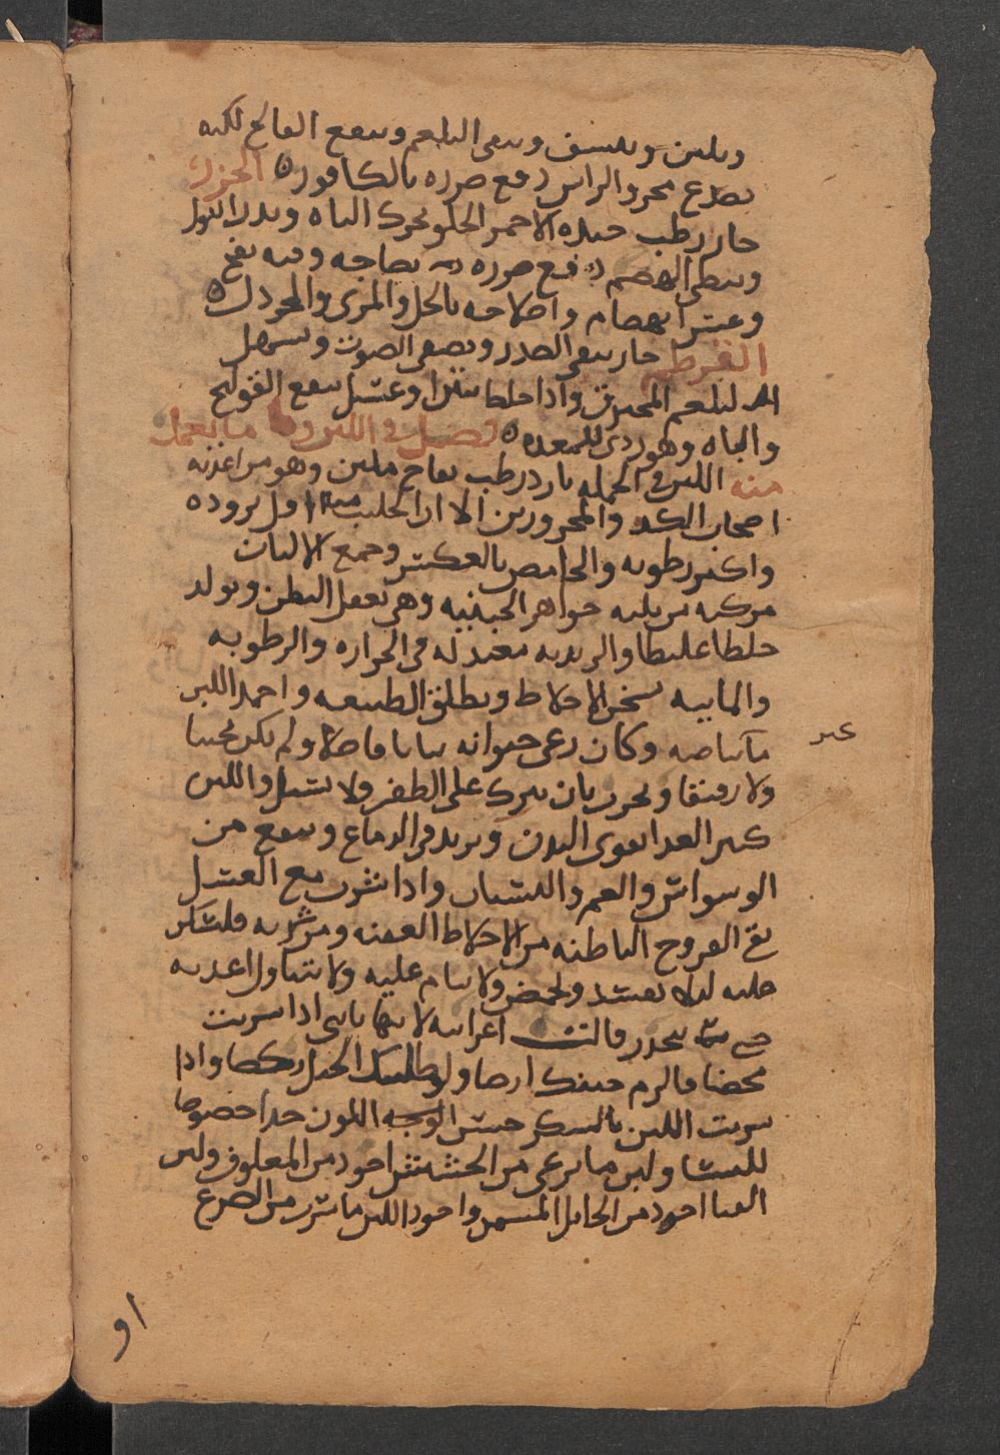 ويلين وينشف وينقي البلغم وينفع الفالج لكنه
يصدع محرور الراس دفع ضرره بالكافور ه الجزر
حار رطب جيده الاحمر الحلو يحرك الباه ويدر البول
ويبطي الهضم دفع ضرره انضاجه وفيه نفخ
وعسر انهضام واصلاحه بالخل والمري والخردل ه
القرطم حار ينقي الصدر ويصفي الصوت ويسهل
البلغم المحترق واذا خلط بتين او عسل ينفع القولنج
والباه وهو ردي للمعده ه فصل في اللبن وما يعمل
منه اللبن في الجمله بارد رطب نفاخ ملين وهو من اغذيه
اصحاب الكد والمحرورين الا ان الحليب منه اقل بروده
واكثر رطوبه والحامض بالعكس وجميع الالبان
مركبه من ثلثه جواهر الجبنيه وهي تعقل البطن وتولد
خلطا غليظا والزبديه معتدله في الحراره والرطوبه
والماييه تسخن الاخلاط وتطلق الطبيعه واحمد اللبن
ما بياضه وكان رعي حيوانه نباتا فاضلا ولم يكن ثخينا
غير
ولا رقيقا ويجرب بان يترك علي الظفر ولا يسيل واللبن
كثير الغدا يقوي البدن ويزيد في الدماغ وينفع من
الوسواس والغم والنسيان واذا شرب مع العسل
نقي القروح الباطنه من الاخلاط العفنه ومن شربه فليسكن
عليه ليلا يفسد ويحمض ولا ينام عليه ولا يتناول اغذيه
حتي ينحدر قالت اعرابيه لابنها يا بني اذا شربت
محضا فالزم جنبك ارضا ولو طلبتك الخيل ركضا واذا
شربت اللبن بالسكر حسن الوجه اللون جدا خصوصا
للنسا ولبن ما يرعي من الحشيش اجود من المعلوف ولبن
الفتا اجود من الحايل المسن واجود اللبن ما شرب من الضرع
او